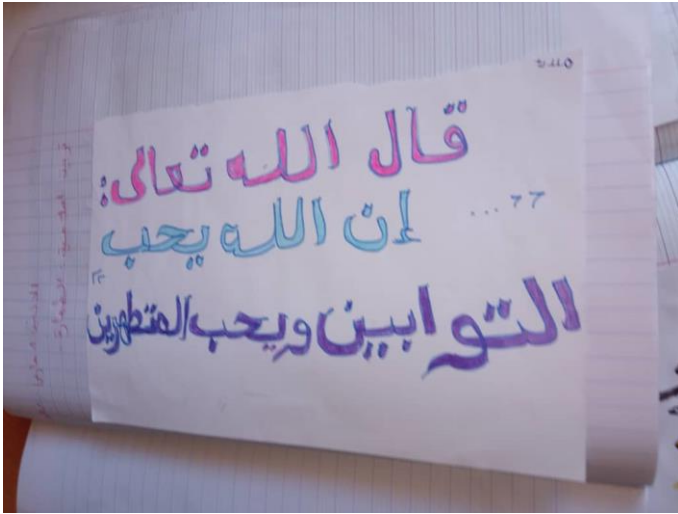 قال الله تعالى:
"... إن الله يحب
التوابين ويحب المتطهرين"